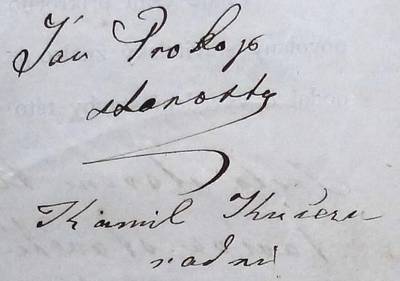 Ján Prokop
starosta
Kamil Kučera
radní